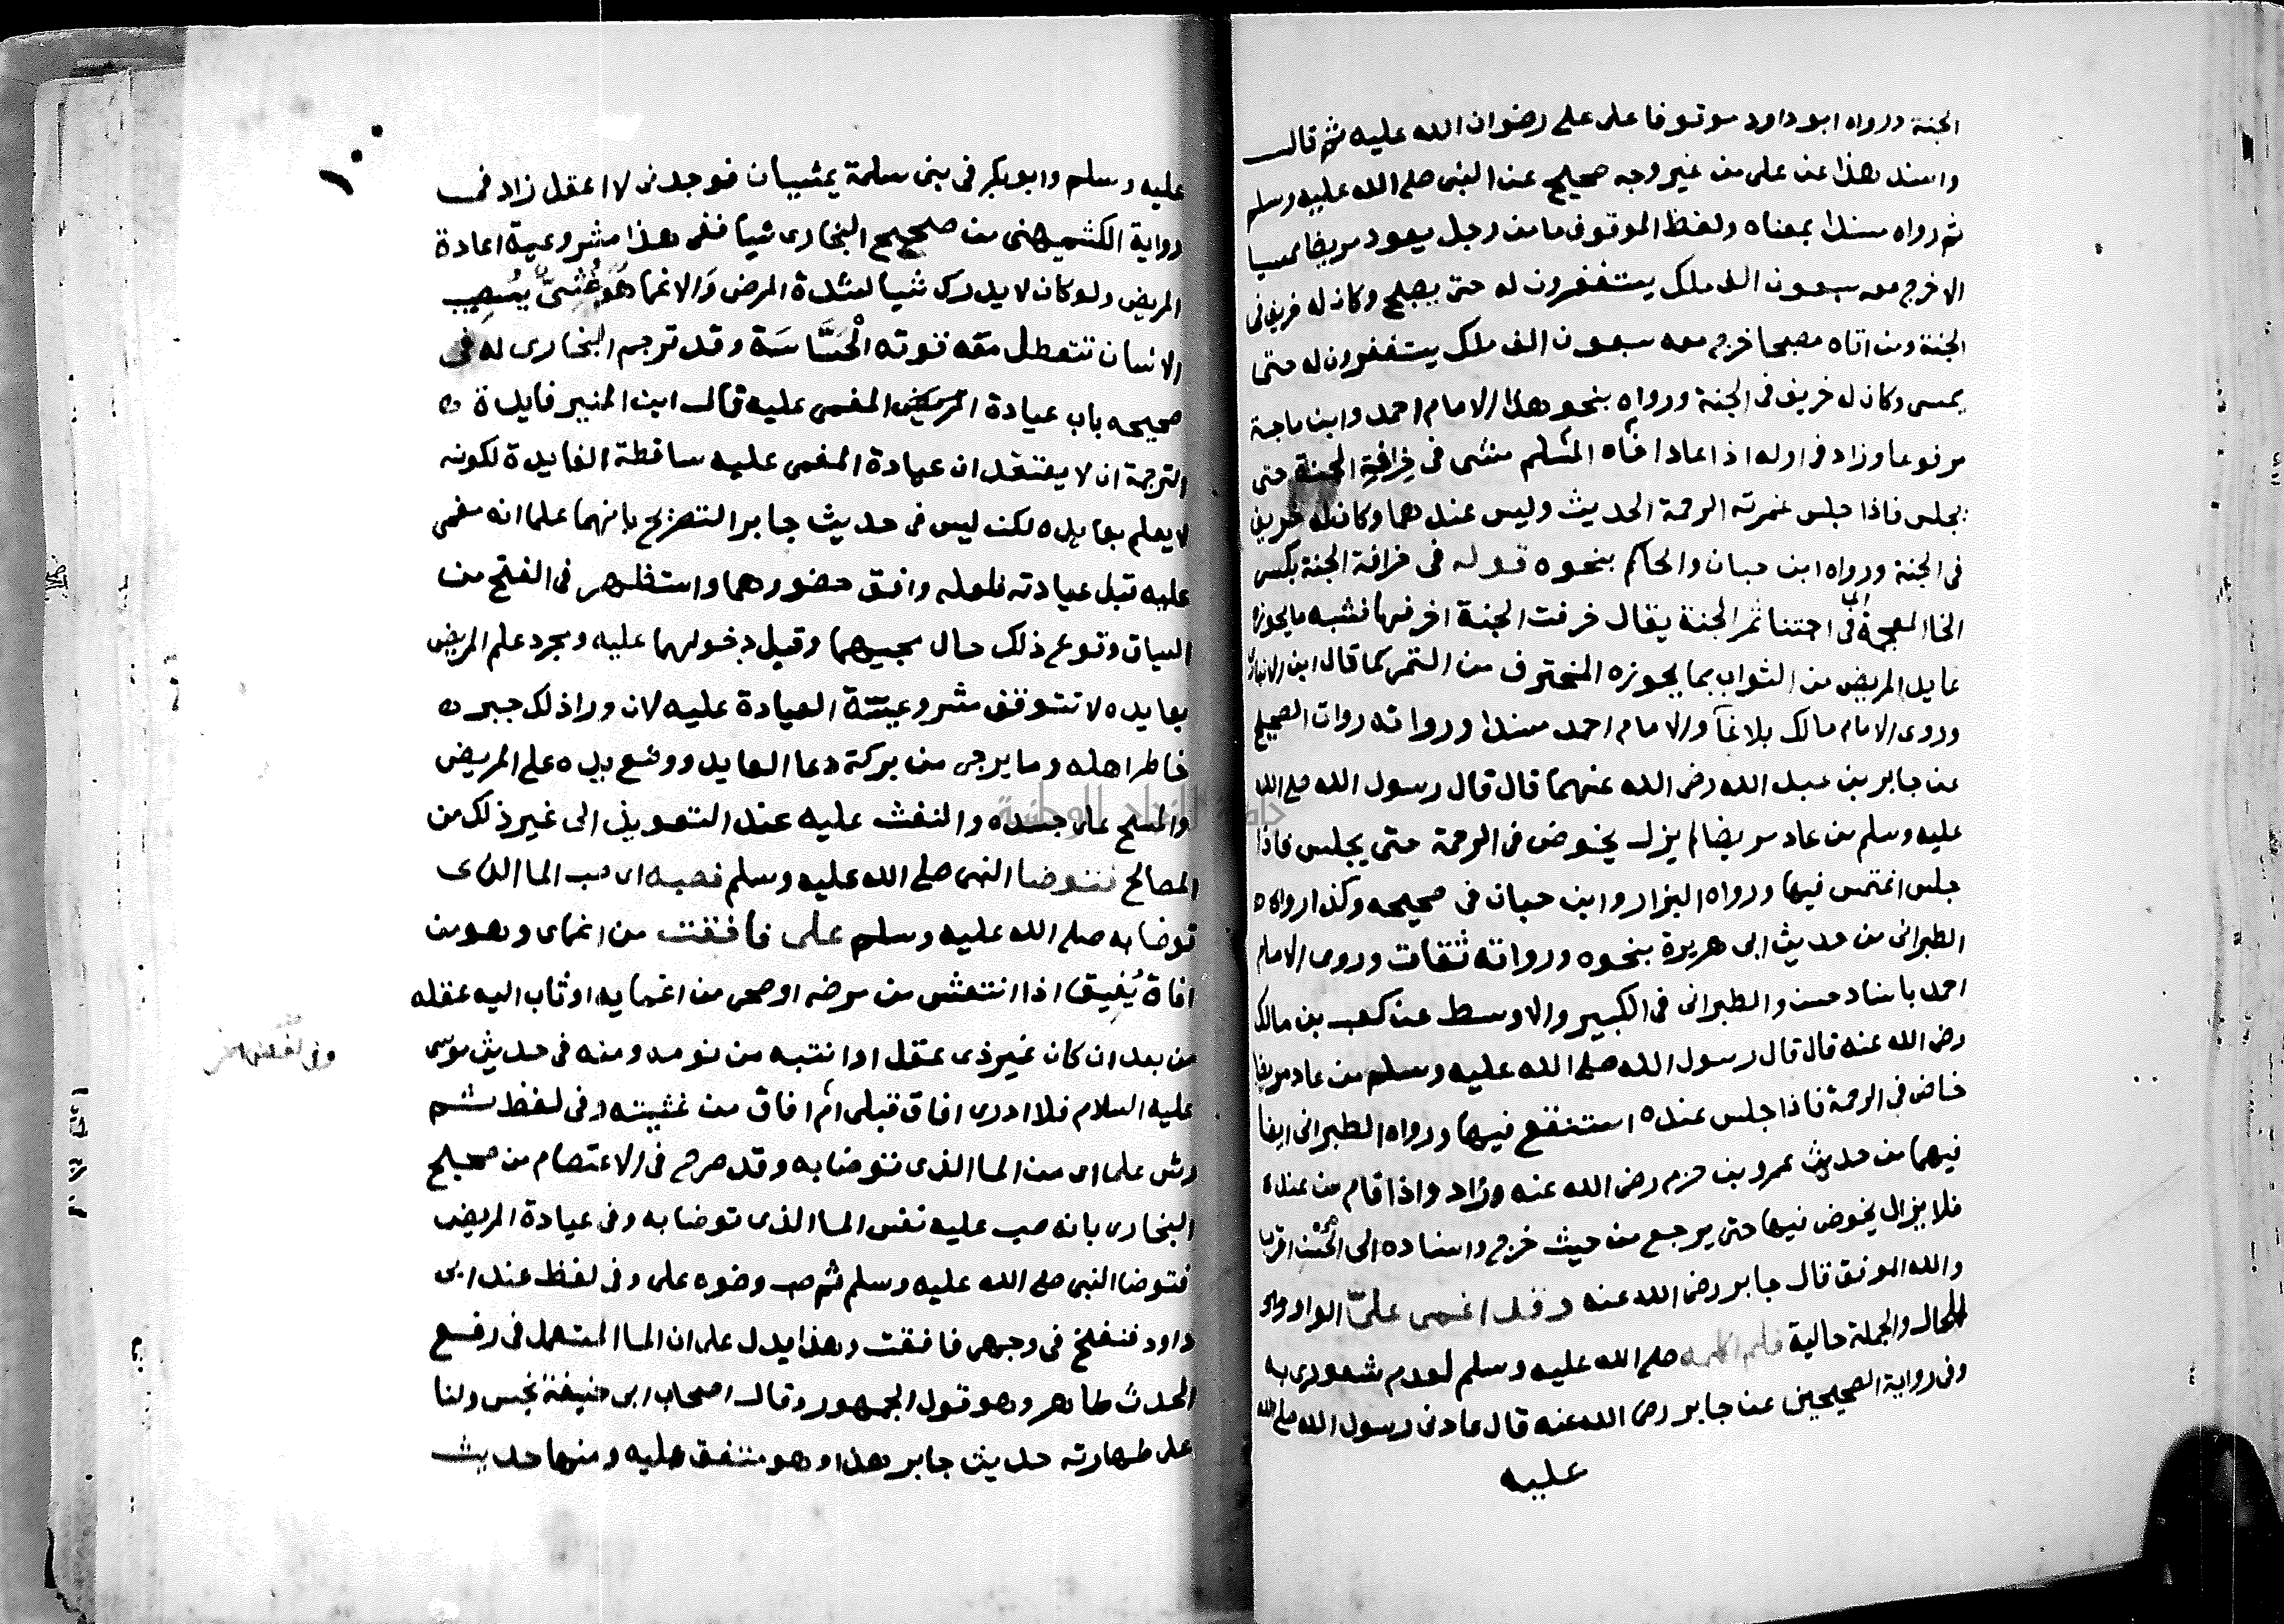 الجنة ورواه ابو داود موقوفا على علي رضوان الله عليه ثم قال
واسند هذا عن علي من غير وجه صحيح عن النبي صلى الله عليه وسلم
ثم رواه مسندا بمعناه ولفظ الموقوف ما من رجل يعود مريضا ممسيا
الا خرج معه سبعون الف ملك يستغفرون له حتى يصبح وكان له خريف في
الجنة ومن اتاه مصبحا خرج معه سبعون الف ملك يستغفرون له حتى
يمسي وكان له خريف في الجنة ورواه بنحو هذا الامام احمد وابن ماجة
مرفوعا وزاد في اوله اذا عاد اخاه المسلم مشى في خرافة الجنة حتى
يجلس فاذا جلس غمرته الرحمة الحديث وليس عندهما وكان له خريف
في الجنة ورواه ابن حبان والحاكم بنحوه قوله في خرافة الجنة بكسر
الخا المعجمة اى في اجتنا ثمر الجنة يقال خرفت الجنة اخرفها فشبه ما يحوزه
عايد المريض من الثواب بما يحوزه المخترف من التمر كما قال ابن الانباري
وروى الامام مالك بلاغا والامام احمد مسندا ورواته روات الصحيح
عن جابر بن عبد الله رضي الله عنهما قال قال رسول الله صلى الله
عليه وسلم من عاد مريضا لم يزل يخوض في الرحمة حتى يجلس فاذا
جلس اغتمس فيها ورواه البزار وابن حبان في صحيحه وكذا رواه
الطبراني من حديث ابي هريرة بنحوه ورواته ثقات وروى الامام
احمد باسناد حسن والطبراني في الكبير والاوسط عن كعب بن مالك
رضي الله عنه قال قال رسول الله صلى الله عليه وسلم من عاد مريضا
خاض في الرحمة فاذا جلس عنده استنقع فيها ورواه الطبراني ايضا
فيهما من حديث عمرو بن حزم رضي الله عنه وزاد واذا قام من عنده
فلا يزال يخوض فيها حتى يرجع من حيث خرج واسناده الى الحسن اقرب
والله الموفق قال جابر رضي الله عنه وقد اغمى علىّ الواو واو
الحال والجملة حالية فلم اكلمه صلى الله عليه وسلم لعدم شعوري به
وفى رواية الصحيحين عن جابر رضي الله عنه قال عادنى رسول الله صلى الله
عليه
١٠٠
عليه وسلم وابو بكر في بني سلمة يمشيان فوجدني لا اعقل زاد في
رواية الكشميهني من صحيح البخاري شيا ففي هذا مشروعية اعادة
المريض ولو كان لا يدرك شيا لشدة المرض والاغما هو غشيٌّ يصيب
الانسان تتعطل معه قوته الحسّاسة وقد ترجم البخاري له في
صحيحه باب عيادة المريض المغمى عليه قال ابن المنير فايدة
الترجمة ان لا يعتقد ان عيادة المغمى عليه ساقطة الفايدة لكونه
لا يعلم بعايده لكن ليس في حديث جابر التصريح بانهما علما انه مغمى
عليه قبل عيادته فلعله وافق حضورهما واستظهر في الفتح من
السياق وقوع ذلك حال مجيهما وقبل دخولهما عليه ومجرد علم المريض
بعايده لا تتوقف مشروعيّة العيادة عليه لان ورا ذلك جبر
خاطر اهله وما يرجى من بركة دعا العايد ووضع يده على المريض
والمسح على جسده والنفث عليه عند التعويذ الى غير ذلك من
المصالح فتوضا النبي صلى الله عليه وسلم فصبه اى صب الما الذي
توضا به صلى الله عليه وسلم على فافقت من اغماى وهو من
افاق يُفيق اذا انتعش من مرضه او صحى من اغمايه او ثاب اليه عقله
من بعد ان كان غير ذى عقل او انتبه من نومه ومنه في حديث موسى
عليه السلام فلا ادرى افاق قبلى أم افاق من غشيته وفي لفظ ثم
رش على اى من الما الذي توضا به وقد صرح في الاعتصام من صحيح
البخاري بانه صب عليه نفس الما الذي توضا به وفي عيادة المريض
فتوضا النبي صلى الله عليه وسلم ثم صب وضوه على وفي لفظ عند ابى
داود فنفخ في وجهى فافقت وهذا يدل على ان الما المستعمل في رفع
الحدث طاهر وهو قول الجمهور وقال اصحاب ابى حنيفة نجس ولنا
على طهارته حديث جابر هذا وهو متفق عليه ومنها حديث
جامعة النجاح الوطنية